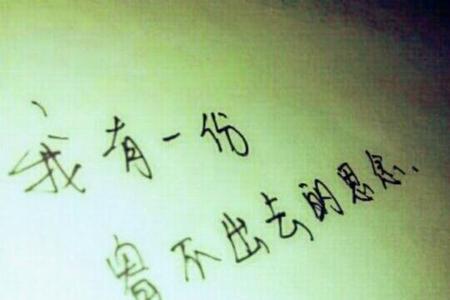 我有一份
寄不出去的思念、